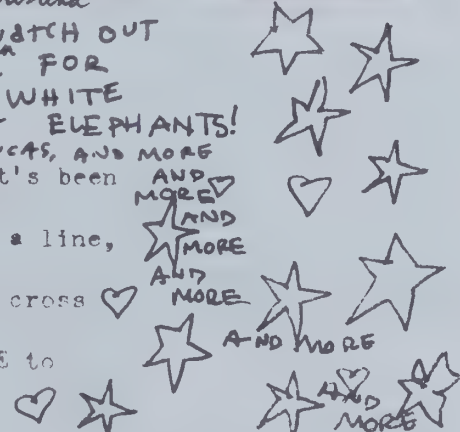 WATCH OUT
FOR
WHITE
ELEPHANTS!
AND MORE
t's been AND
MORE
AND
a line, MORE
AND
cross MORE
AND MORE
E to
AND
MORE